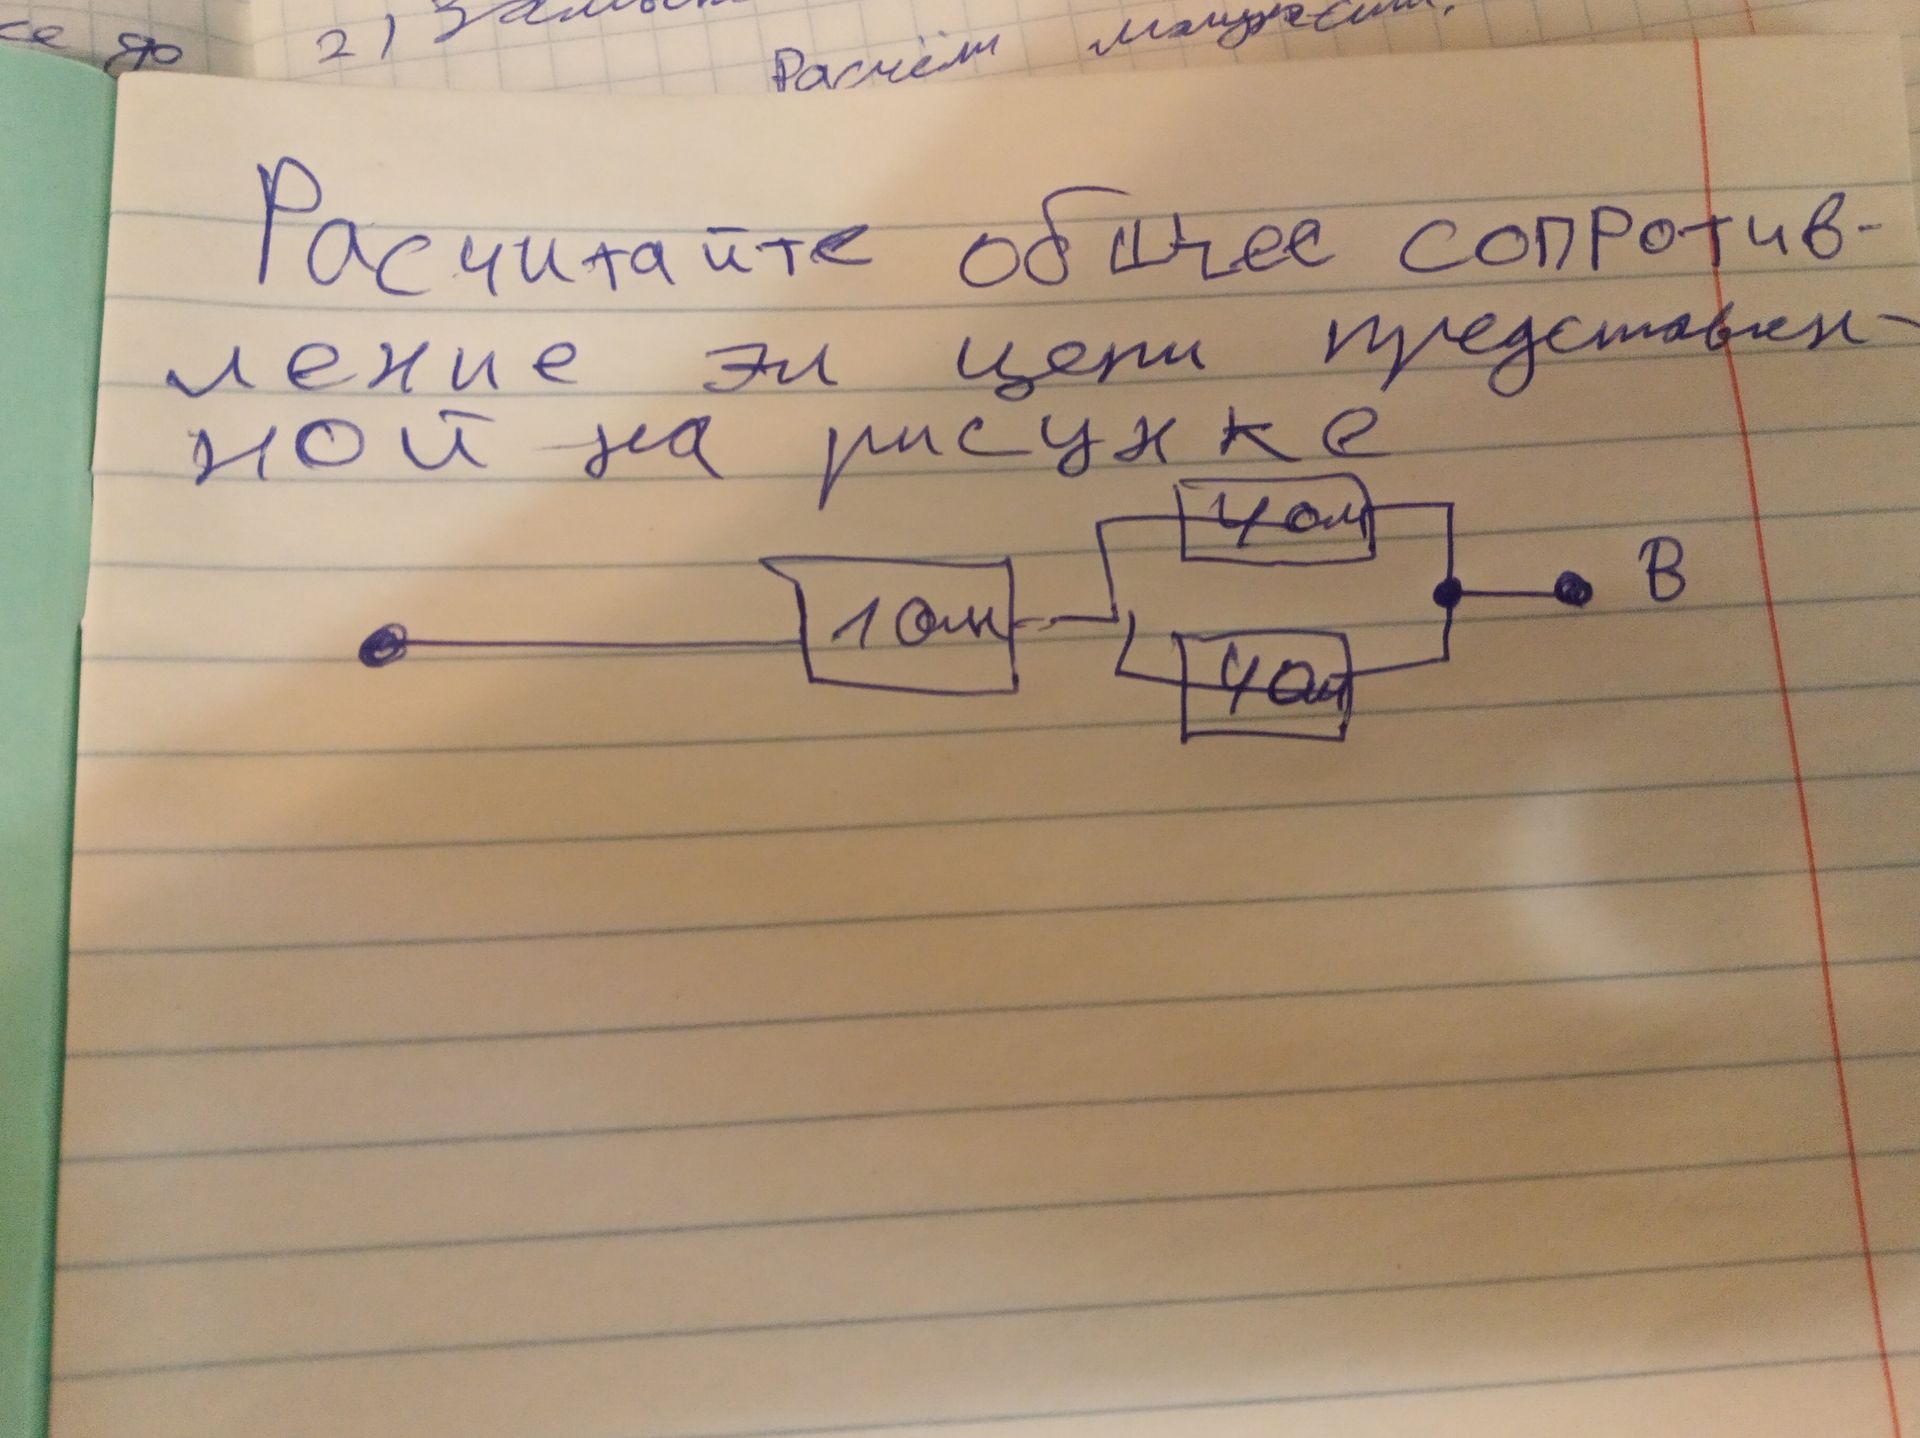 се до
2) Замык
Расчёт
Расчитайте общее сопротив-
ление эл цепи представлен-
ной на рисунке
4 ом
1 Ом
B
4 Ом